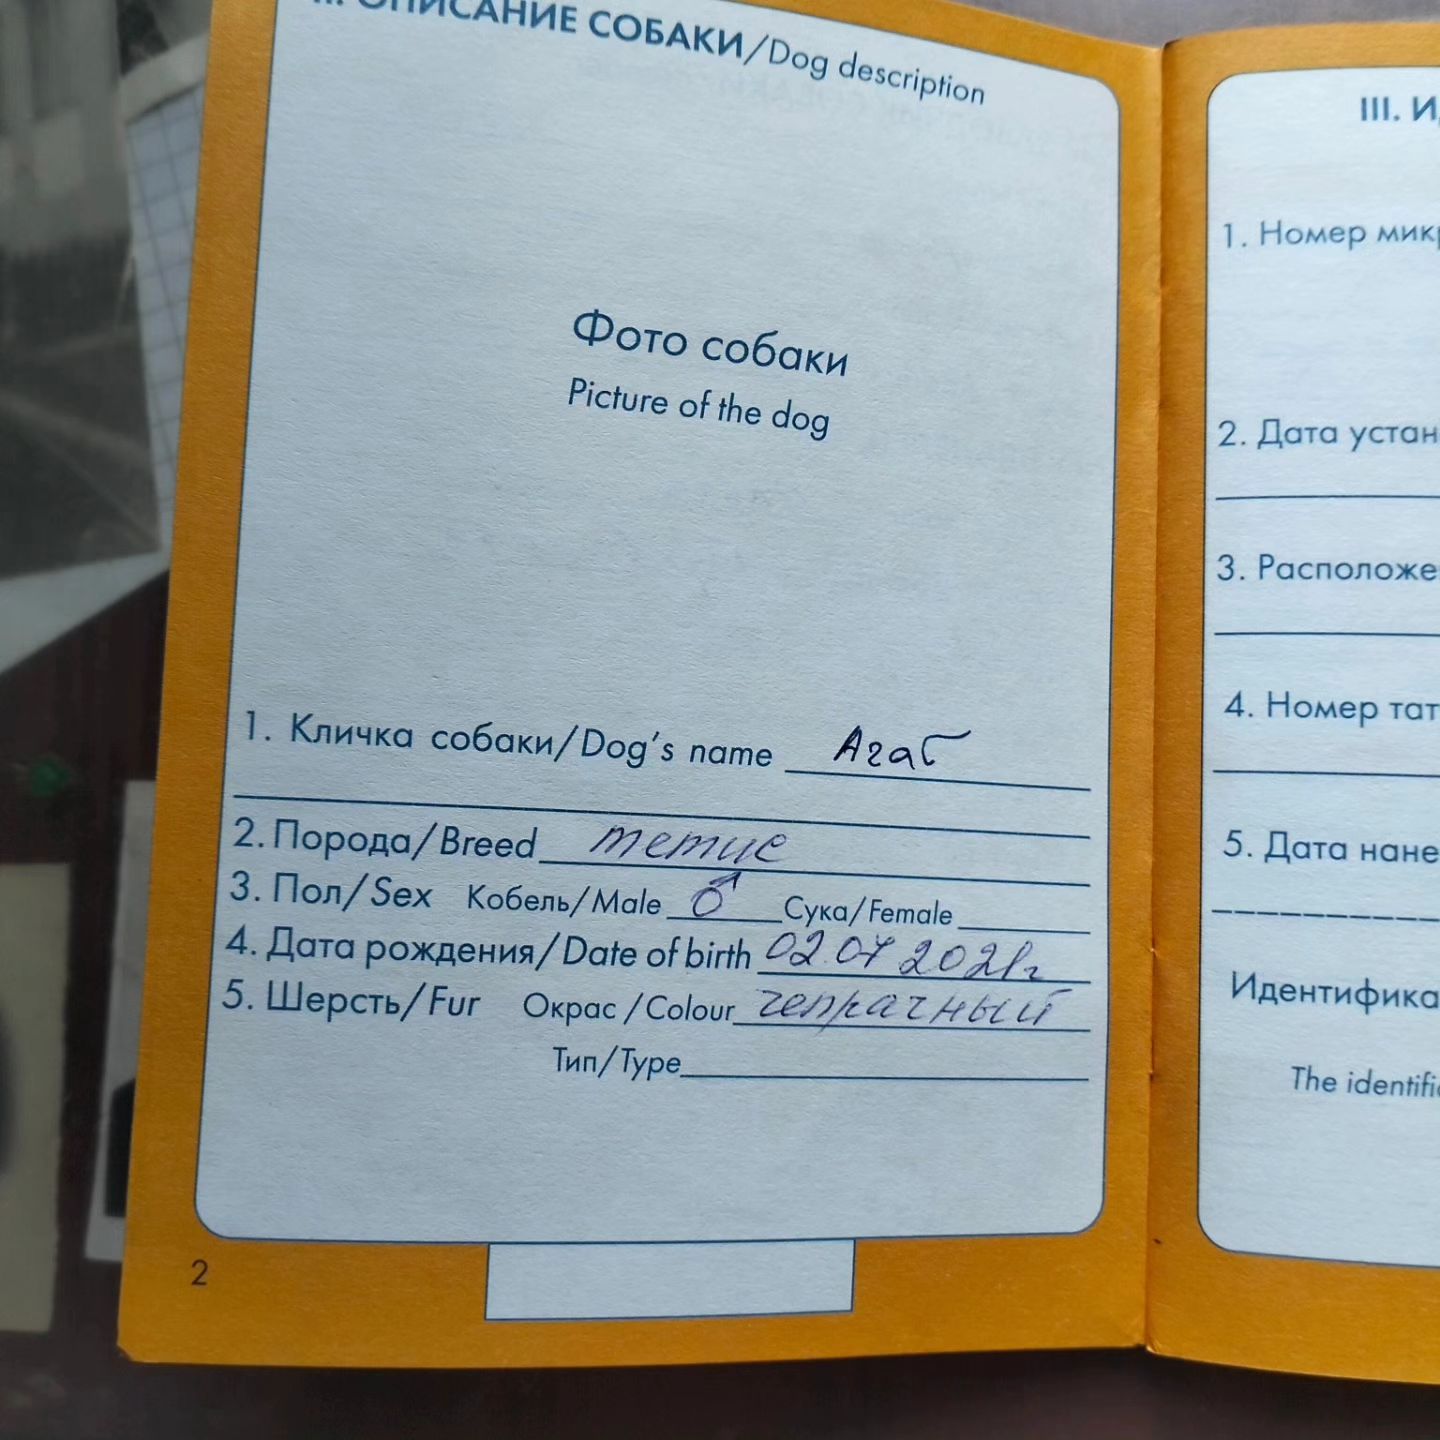 II. ОПИСАНИЕ СОБАКИ/Dog description
Фото собаки
Picture of the dog
1. Кличка собаки/Dog's name Агат
2. Порода/Breed метис
3. Пол/Sex Кобель/Male ♂ Сука/Female
4. Дата рождения/Date of birth 02.07 2021г
5. Шерсть/Fur Окрас/Colour чепрачный
Тип/Type
2
III. И
1. Номер мик
2. Дата устан
3. Расположе
4. Номер тат
5. Дата нане
Идентифика
The identifi